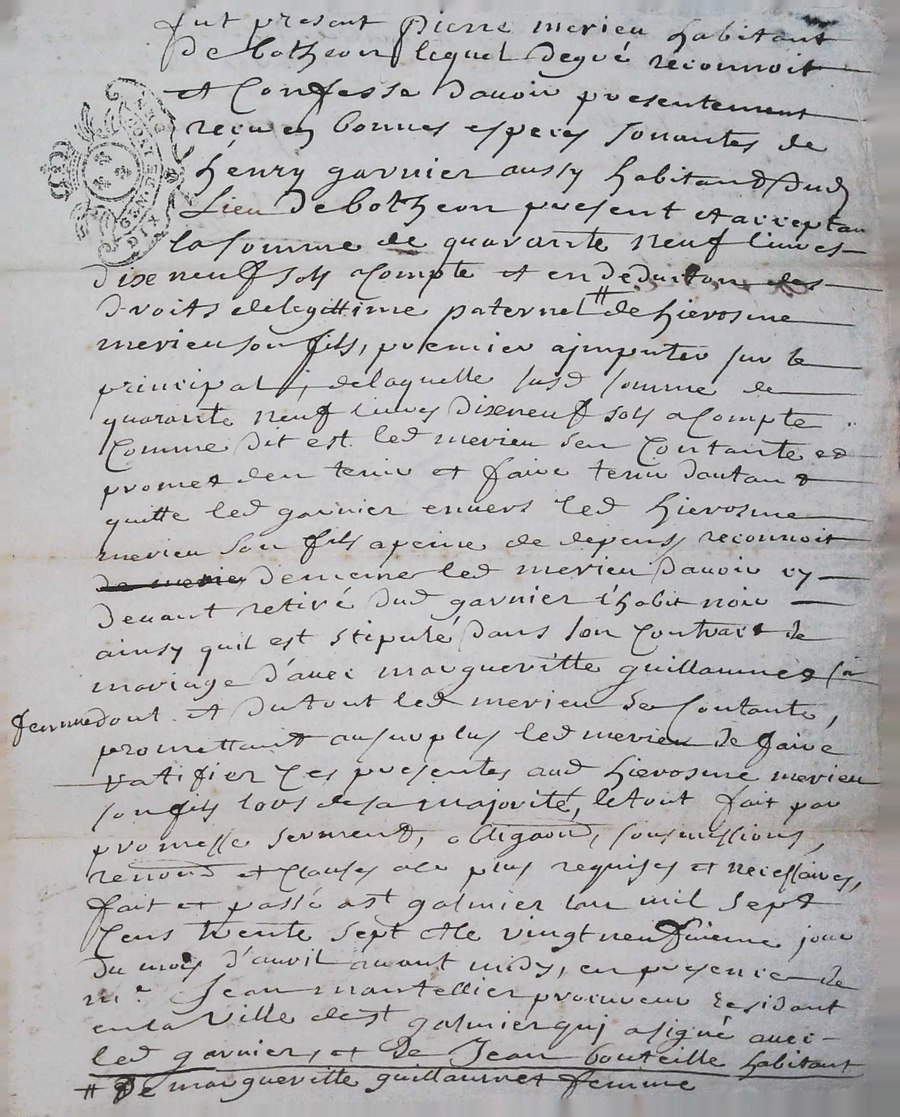 fut present pierre merieu habitant
De botheon lequel degré reconnoit
et Confesse davoir presentement
reçu en bonnes especes sonantes de
henry garnier aussy habitant dud
Lieu De botheon present et acceptan
la somme de quarante neuf livres
dixneuf sols acompte et en deduction des
droits de legittime paternel # de hierosme
merieu son fils, premier ajmputer sur le
principal, de laquelle susd somme de
quarante neuf livres dixneuf sols acompte
Comme dit est led merieu sen Contante et
promet den tenir et faire tenir dautant
quitte led garnier envers led hierosme
merieu son fils apeine de depens reconnoit
de meme led merieu davoir cy
devant retiré dud garnier l'habit noir
ainsy quil est stipulé dans son Contract de
mariage d'avec margueritte guillaumet sa
femme dont et du tout led merieu se Contante,
promettant au surplus led merieu de faire
ratifier Ces presentes aud hierosme merieu
son fils lors de sa majorité, le tout fait par
promesse serment, obligaon, sousmissions,
renond et Clauses a ce plus requises et necessaires,
fait et passé a st galmier lan mil sept
Cens trente sept et le vingt neufvieme jour
du mois d'avril avant midy, en presence de
me Jean mantellier procureur residant
en la Ville de st galmier qui a signé avec
led garnier, et de Jean bouteille habitant
# de margueritte guillaumet femme
GEN. DE LION
DIX